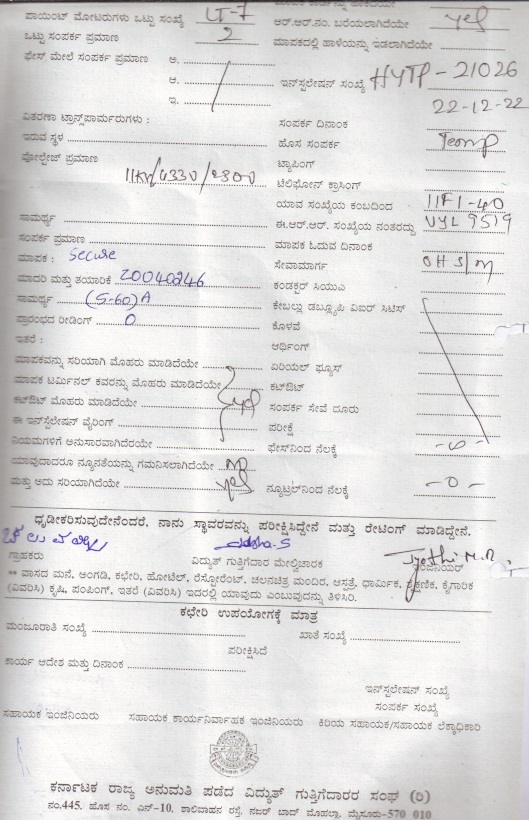 ಪಾಯಿಂಟ್ ಮೋಟರುಗಳು ಒಟ್ಟು ಸಂಖ್ಯೆ LT-7
ಆರ್.ಆರ್.ನಂ. ಬರೆಯಲಾಗಿದೆಯೇ yes
ಒಟ್ಟು ಸಂಪರ್ಕ ಪ್ರಮಾಣ 2
ಮಾಪಕದಲ್ಲಿ ಹಾಳೆಯನ್ನು ಇಡಲಾಗಿದೆಯೇ
ಫೇಸ್ ಮೇಲೆ ಸಂಪರ್ಕ ಪ್ರಮಾಣ ಅ.
ಆ.
ಇನ್‌ಸ್ಟಲೇಷನ್ ಸಂಖ್ಯೆ HYTP-21026
ಇ.
22-12-22
ವಿತರಣಾ ಟ್ರಾನ್ಸ್‌ಪಾರ್ಮರುಗಳು :
ಸಂಪರ್ಕ ದಿನಾಂಕ
ಇರುವ ಸ್ಥಳ
ಹೊಸ ಸಂಪರ್ಕ Temp
ವೋಲ್ಟೇಜ್ ಪ್ರಮಾಣ
ಟ್ಯಾಪಿಂಗ್
11KV/433V/230V
ಟೆಲಿಫೋನ್ ಕ್ರಾಸಿಂಗ್
ಯಾವ ಸಂಖ್ಯೆಯ ಕಂಬದಿಂದ 11F1-40
ಸಾಮರ್ಥ್ಯ
ಈ.ಆರ್.ಆರ್. ಸಂಖ್ಯೆಯ ನಂತರದ್ದು VYL 9519
ಸಂಪರ್ಕ ಪ್ರಮಾಣ
ಮಾಪಕ ಓದುವ ದಿನಾಂಕ
ಮಾಪಕ : Secure
ಸೇವಾಮಾರ್ಗ OHS/M
ಮಾದರಿ ಮತ್ತು ತಯಾರಿಕೆ 20040246
ಕಂಡಕ್ಟರ್ ಸಿಯುಎ
ಸಾಮರ್ಥ್ಯ (5-60)A
ಕೇಬಲ್ಲು ಡಬ್ಲ್ಯೂಪಿ ವಿಐರ್ ಸಿಟಿಸ್
ಪ್ರಾರಂಭದ ರೀಡಿಂಗ್ 0
ಕೊಳವೆ
ಇತರೆ :
ಅರ್ಥಿಂಗ್
ಮಾಪಕವನ್ನು ಸರಿಯಾಗಿ ಮೊಹರು ಮಾಡಿದೆಯೇ
ಏರಿಯಲ್ ಫ್ಯೂಸ್
ಮಾಪಕ ಟರ್ಮಿನಲ್ ಕವರನ್ನು ಮೊಹರು ಮಾಡಿದೆಯೇ
ಕಟ್‌ಔಟ್
ಕಟ್‌ಔಟ್ ಮೊಹರು ಮಾಡಿದೆಯೇ yes
ಸಂಪರ್ಕ ಸೇವೆ ದೂರು
ಈ ಇನ್‌ಸ್ಟಲೇಷನ್ ವೈರಿಂಗ್
ಪರೀಕ್ಷೆ
ನಿಯಮಗಳಿಗೆ ಅನುಸಾರವಾಗಿದೆರಯೇ
ಫೇಸ್‌ನಿಂದ ನೆಲಕ್ಕೆ
ಯಾವುದಾದರೂ ನ್ಯೂನತೆಯನ್ನು ಗಮನಿಸಲಾಗಿದೆಯೇ no
ಮತ್ತು ಅದು ಸರಿಯಾಗಿದೆಯೇ yes
ನ್ಯೂಟ್ರಲ್‌ನಿಂದ ನೆಲಕ್ಕೆ -0-
ಧೃಡೀಕರಿಸುವುದೇನೆಂದರೆ, ನಾನು ಸ್ಥಾವರವನ್ನು ಪರೀಕ್ಷಿಸಿದ್ದೇನೆ ಮತ್ತು ರೇಟಿಂಗ್ ಮಾಡಿದ್ದೇನೆ.
Jyothi M.R
ಗ್ರಾಹಕರು ವಿದ್ಯುತ್ ಗುತ್ತಿಗೆದಾರ ಮೇಲ್ವಿಚಾರಕ ಇಂಜಿನಿಯರ್
** ವಾಸದ ಮನೆ, ಅಂಗಡಿ, ಕಛೇರಿ, ಹೋಟೆಲ್, ರೆಸ್ಟೋರೆಂಟ್, ಚಲನಚಿತ್ರ ಮಂದಿರ, ಆಸ್ಪತ್ರೆ, ಧಾರ್ಮಿಕ, ಶೈಕ್ಷಣಿಕ, ಕೈಗಾರಿಕೆ
(ವಿವರಿಸಿ) ಕೃಷಿ, ಪಂಪಿಂಗ್, ಇತರೆ (ವಿವರಿಸಿ) ಇದರಲ್ಲಿ ಯಾವುದು ಎಂಬುವುದನ್ನು ತಿಳಿಸಿರಿ.
ಕಛೇರಿ ಉಪಯೋಗಕ್ಕೆ ಮಾತ್ರ
ಮಂಜೂರಾತಿ ಸಂಖ್ಯೆ ಖಾತೆ ಸಂಖ್ಯೆ
ಪರೀಕ್ಷಿಸಿದೆ
ಕಾರ್ಯ ಆದೇಶ ಮತ್ತು ದಿನಾಂಕ
ಇನ್‌ಸ್ಟಲೇಷನ್ ಸಂಖ್ಯೆ
ಸಂಪರ್ಕ ಸಂಖ್ಯೆ
ಸಹಾಯಕ ಇಂಜಿನಿಯರು ಸಹಾಯಕ ಕಾರ್ಯನಿರ್ವಾಹಕ ಇಂಜಿನಿಯರು ಕಿರಿಯ ಸಹಾಯಕ/ಸಹಾಯಕ ಲೆಕ್ಕಾಧಿಕಾರಿ
ಕರ್ನಾಟಕ ರಾಜ್ಯ ಅನುಮತಿ ಪಡೆದ ವಿದ್ಯುತ್ ಗುತ್ತಿಗೆದಾರರ ಸಂಘ (ರಿ)
ನಂ.445, ಹೊಸ ನಂ. ಎನ್-10, ಶಾಲಿವಾಹನ ರಸ್ತೆ, ನಜರ್ ಬಾದ್ ಮೊಹಲ್ಲಾ, ಮೈಸೂರು-570 010